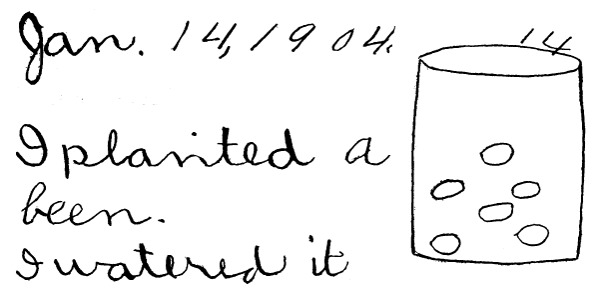 Jan. 14, 1904.
14
I planted a
been.
I watered it